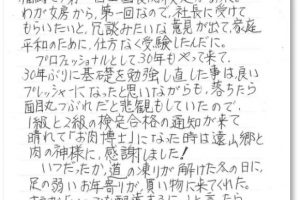 わが女房から、第一回なので、社長に受けて
もらいたいと、冗談みたいな意見が出て、家庭
平和のために、仕方なく受験したんだに。
プロフェッショナルとして30年もやって来て、
30年ぶりに基礎を勉強し直した事は良い
プレッシャーになったと思いながらも、落ちたら
面目丸つぶれだと悲観もしていたので、
1級と2級の検定合格の通知が来て
晴れて「お肉博士」になった時は遠山郷と
肉の神様に、感謝しました!
いつだったか、道の凍りが解けた冬の日に、
足の弱いお年寄りが、買い物に来てくれた。